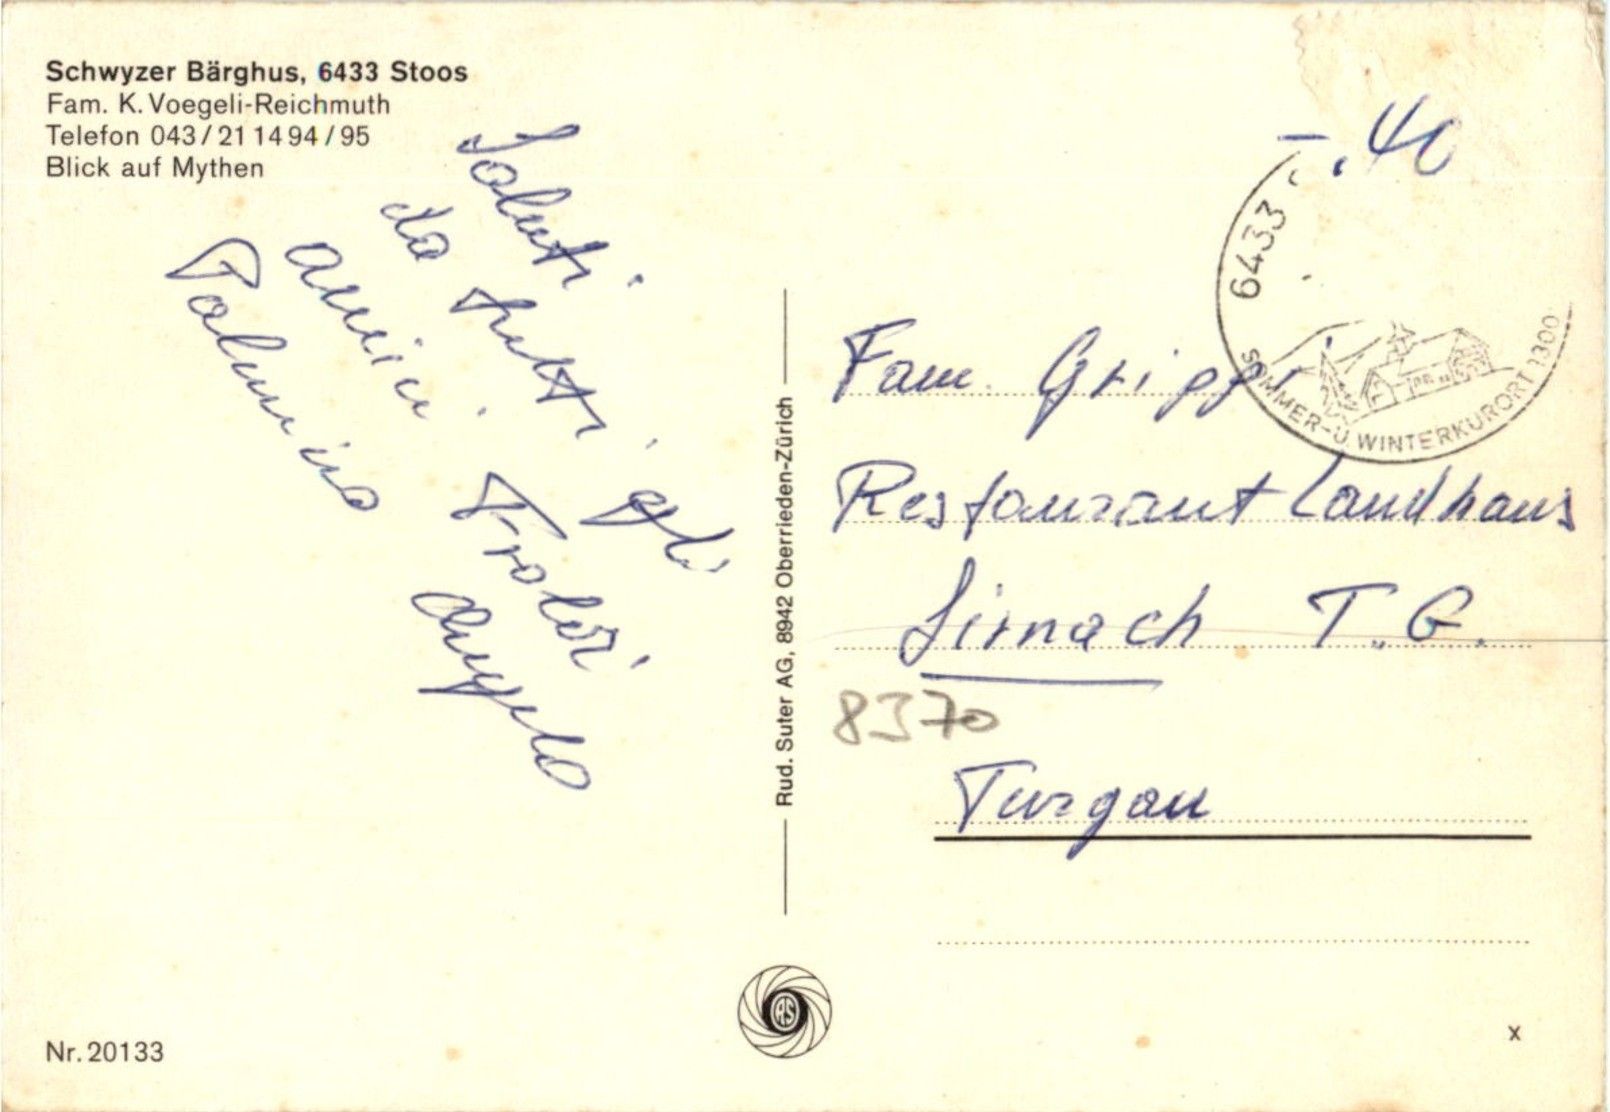 Schwyzer Bärghus, 6433 Stoos
Fam. K. Voegeli-Reichmuth
Telefon 043/21 14 94/95
Blick auf Mythen
Saluti
da tutti gli
amici
Angelo
-.40
6433
SOMMER-U. WINTERKURORT 1300
Fam.
Restaurant Landhaus
Sirnach T.G.
8370
Turgau
Rud. Suter AG, 8942 Oberrieden-Zürich
AS
Nr. 20133
x